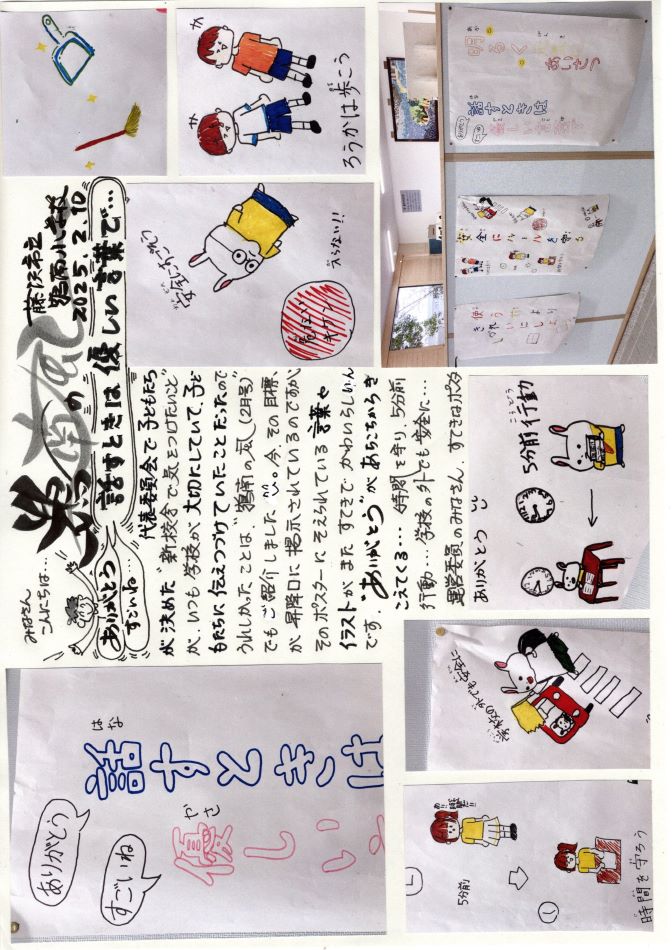 みなさん
こんにちは…
鵠南の風
藤沢市立
鵠南小学校
2025.2.10
ありがとう
すごいね…
話すときは優しい言葉で…
代表委員会で子どもたち
が決めた“新校舎で気をつけたいこと”
が、いつも学校が大切にしていて、子ど
もたちに伝えつづけていたことだったので
うれしかったことは“鵠南の風(2月号)”
でもご紹介しました。今、その目標、
が昇降口に掲示されているのですが
そのポスターにそえられている言葉や
イラストがまたすてきでかわいらしいん
です。“ありがとう”があちこちからき
こえてくる… 時間を守り、5分前
行動… 学校の外でも安全に…
運営委員のみなさん、すてきなポスター
ありがとう
ありがとう
すごいね
はな
話すときは
やさ
優しい
ろうかは歩こう
安全にすごそう
危ない
キケン
入らない!!
あか
明るく
げんき
あいさつ
はな
話すときは
ありがとう
安全にルールを守る
使う
きれいにしよう
こうどう
5分前行動
学校の外でも安全に
5分前
時間を守ろう